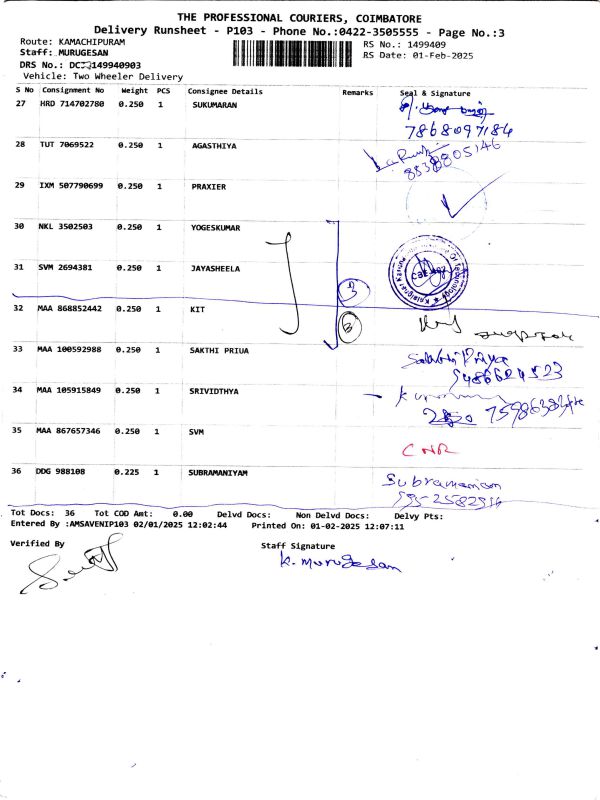 THE PROFESSIONAL COURIERS, COIMBATORE
Delivery Runsheet - P103 - Phone No.:0422-3505555 - Page No.:3
Route: KAMACHIPURAM
RS No.: 1499409
Staff: MURUGESAN
RS Date: 01-Feb-2025
DRS No.: 149940903
Vehicle: Two Wheeler Delivery
S No Consignment No Weight PCS Consignee Details Remarks Seal & Signature
27 HRD 714702780 0.250 1 SUKUMARAN
7868097184
28 TUT 7069522 0.250 1 AGASTHIYA
29 IXM 507790699 0.250 1 PRAXIER
30 NKL 3502503 0.250 1 YOGESKUMAR
31 SVM 2694381 0.250 1 JAYASHEELA
3
32 MAA 868852442 0.250 1 KIT
33 MAA 100592988 0.250 1 SAKTHI PRIUA
Sakthi Priya
34 MAA 105915849 0.250 1 SRIVIDTHYA
35 MAA 867657346 0.250 1 SVM
CNR
36 DDG 988108 0.225 1 SUBRAMANIYAM
Subramaniam
Tot Docs: 36 Tot COD Amt: 0.00 Delvd Docs: Non Delvd Docs: Delvy Pts:
Entered By :AMSAVENIP103 02/01/2025 12:02:44 Printed On: 01-02-2025 12:07:11
Verified By
Staff Signature
K. Murugesan